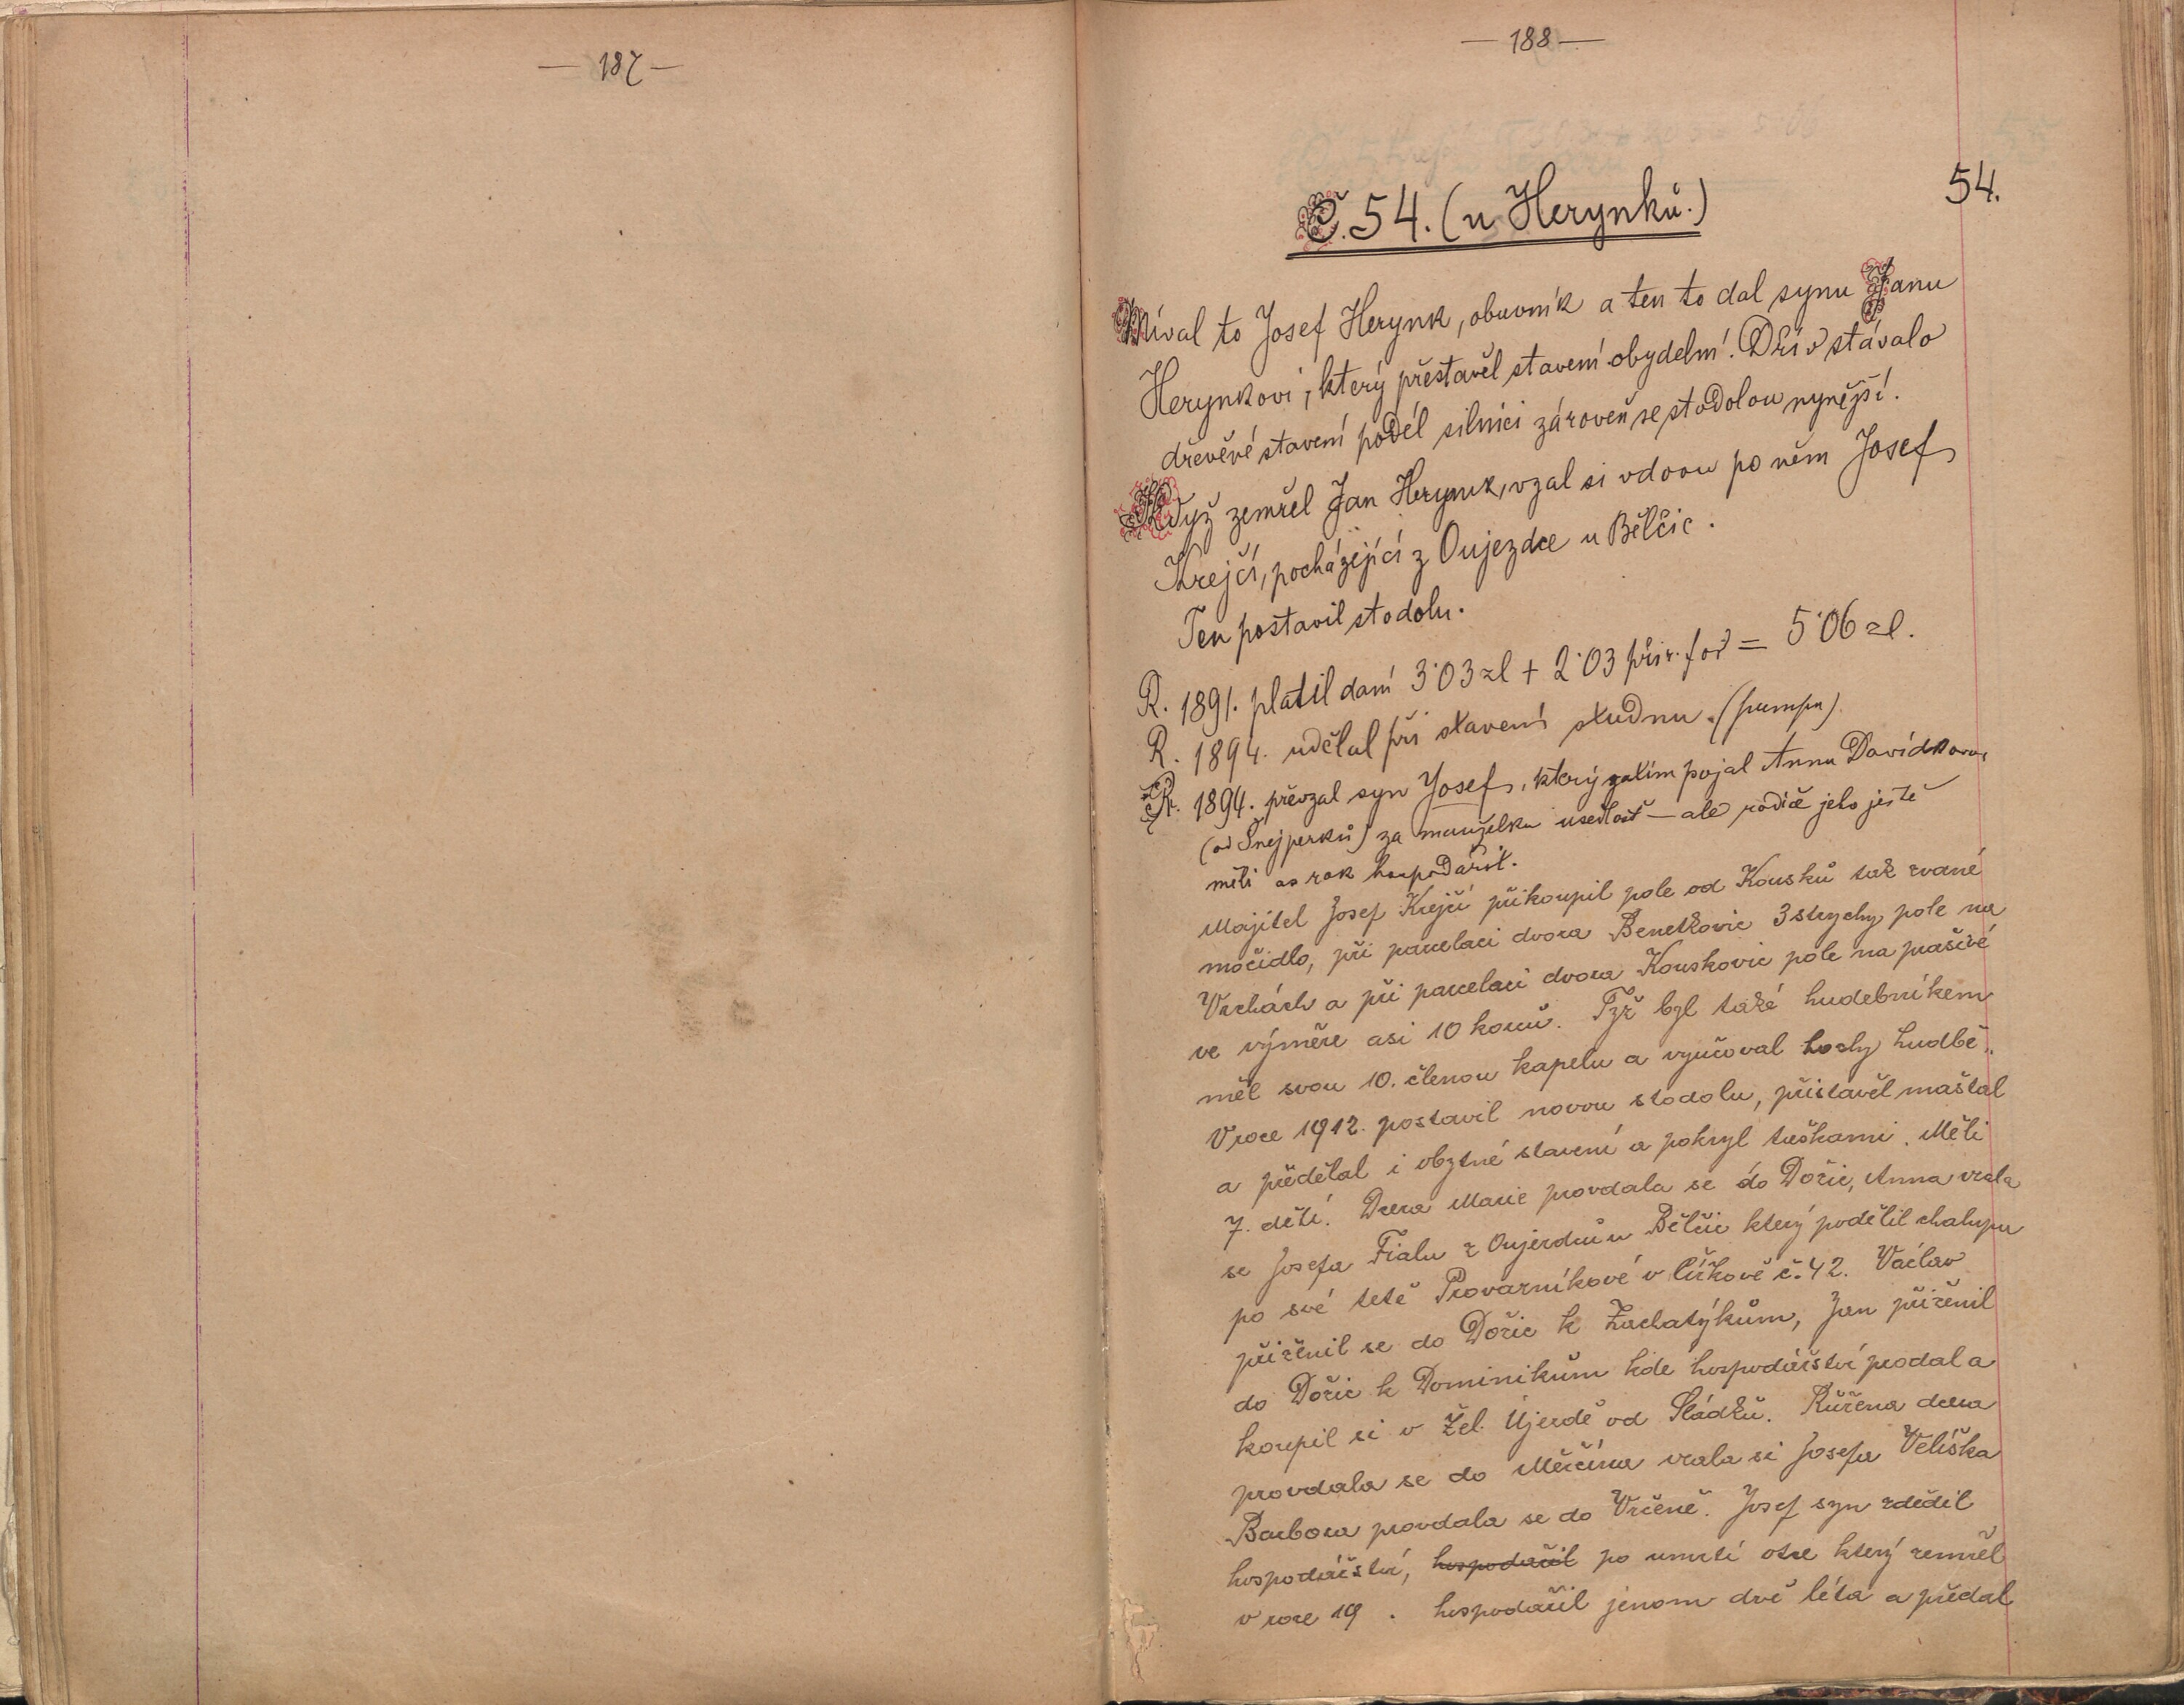 — 187 —
— 188 —
54.
Č. 54. (u Herynků.)
Míval to Josef Herynk, obuvník a ten to dal synu Janu
Herynkovi, který přestavěl stavení obydelní. Dřív stávalo
dřevěné stavení podél silnici zároveň se stodolou nynější.
Když zemřel Jan Herynk, vzal si vdovu po něm Josef
Krejčí, pocházející z Oujezdce u Bělčic.
Ten postavil stodolu.
R. 1891. platil daní 3·03 zl + 2·03 přir. = 5·06 zl.
R. 1894. udělal při stavení studnu. (pumpu)
R. 1894. převzal syn Josef, který zatím pojal Annu Davídkovou
(od Šnejperků) za manželku usedlost — ale rodiče jeho ještě
měli as rok hospodařit.
Majitel Josef Krejčí přikoupil pole od Kousků tak zvané
močidlo, při parcelaci dvora Benetkovic 3 strychy pole na
Vrchách a při parcelaci dvora Kouskovic pole na prašivé
ve výměře asi 10 korců. Týž byl také hudebníkem
měl svou 10. členou kapelu a vyučoval hochy hudbě.
V roce 1912. postavil novou stodolu, přistavěl maštal
a předělal i obytné stavení a pokryl taškami. Měli
7. dětí. Dcera Marie provdala se do Dožic, Anna vzala
se Josefa Fialu z Oujezdce u Bělčic který podělil chalupu
po své tetě Provazníkové v Číčkově č. 42. Václav
přiženil se do Dožic k Zachatýkům, Jan přiženil
do Dožic k Dominikům kde hospodářství prodal a
koupil si v Žel. Újezdě od Sládků. Růžena dcera
provdala se do Měčína vzala si Josefa Velíška
Barbora provdala se do Vrčeně. Josef syn zdědil
hospodářství, hospodařil po umrtí otce který zemřel
v roce 19 . hospodařil jenom dvě léta a předal